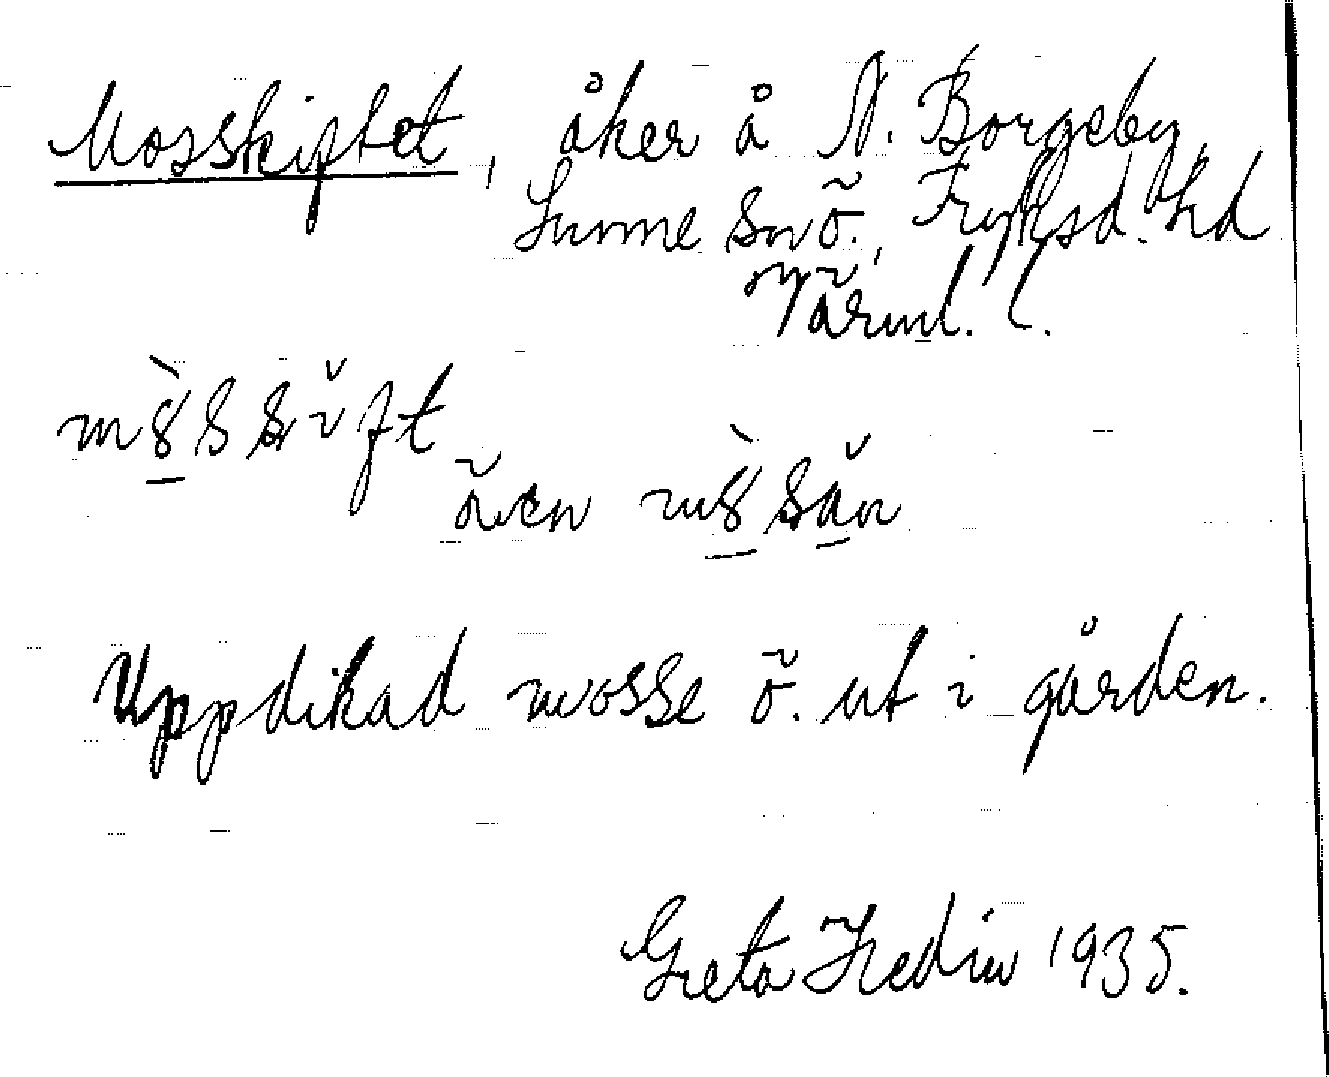 Mosskiptet, åker å N. Borgeby,
Sunne sn ö., Fryksd. hd
Värml. l.
även
Uppdikad mosse ö. ut i gården.
Greta Hedin 1935.